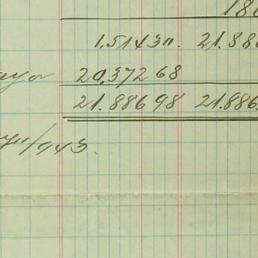 180
1.514 30. 21.886
20.372 68
21.886 98 21.886.
/943.